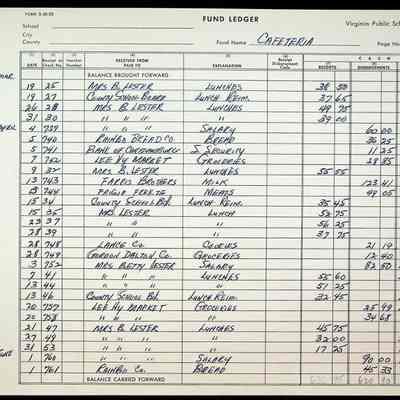 FORM
FUND LEDGER
School
City
County
Virginia Public
Fund Name CAFETERIA
Page
RECEIVED FROM PAID TO EXPLANATION RECEIPTS DISBURSEMENTS
BALANCE BROUGHT FORWARD
19 25 MRS B. LESTER LUNCHES 38 50
19 27 COUNTY SCHOOL BOARD LUNCH REIM. 37 65
26 28 MRS B. LESTER LUNCHES 49 75
31 30 " " " " 39 00
4 739 " " " SALARY 60 00
5 740 RAINBO BREAD CO. BREAD 36 25
5 741 BANK OF S. SECURITY 11 25
7 742 LEE HY MARKET GROCERIES 28 85
9 32 MRS B. LESTER LUNCHES 55 55
13 743 FARRIS BROTHERS MILK 123 41
13 744 FREEZE MEATS 49 05
15 34 COUNTY SCHOOL BD. LUNCH REIM. 35 45
15 35 MRS LESTER LUNCH 52 75
23 37 " " " 56 25
28 39 " " " 37 75
28 748 LANCE CO. COOKIES 21 19
28 749 GORDON DALTON CO. GROCERIES 12 40
3 752 MRS BETTY LESTER SALARY 82 50
7 41 " " " LUNCHES 55 60
13 44 " " " " 51 25
13 46 COUNTY SCHOOL BD. LUNCH REIM. 32 95
20 757 LEE HY MARKET GROCERIES 25 99
20 758 " " " " 34 68
21 47 MRS B. LESTER LUNCHES 45 75
27 49 " " " " 32 00
31 53 " " " " 17 25
1 760 " " " SALARY 90 00
1 761 RAINBO CO. BREAD 45 33
BALANCE CARRIED FORWARD